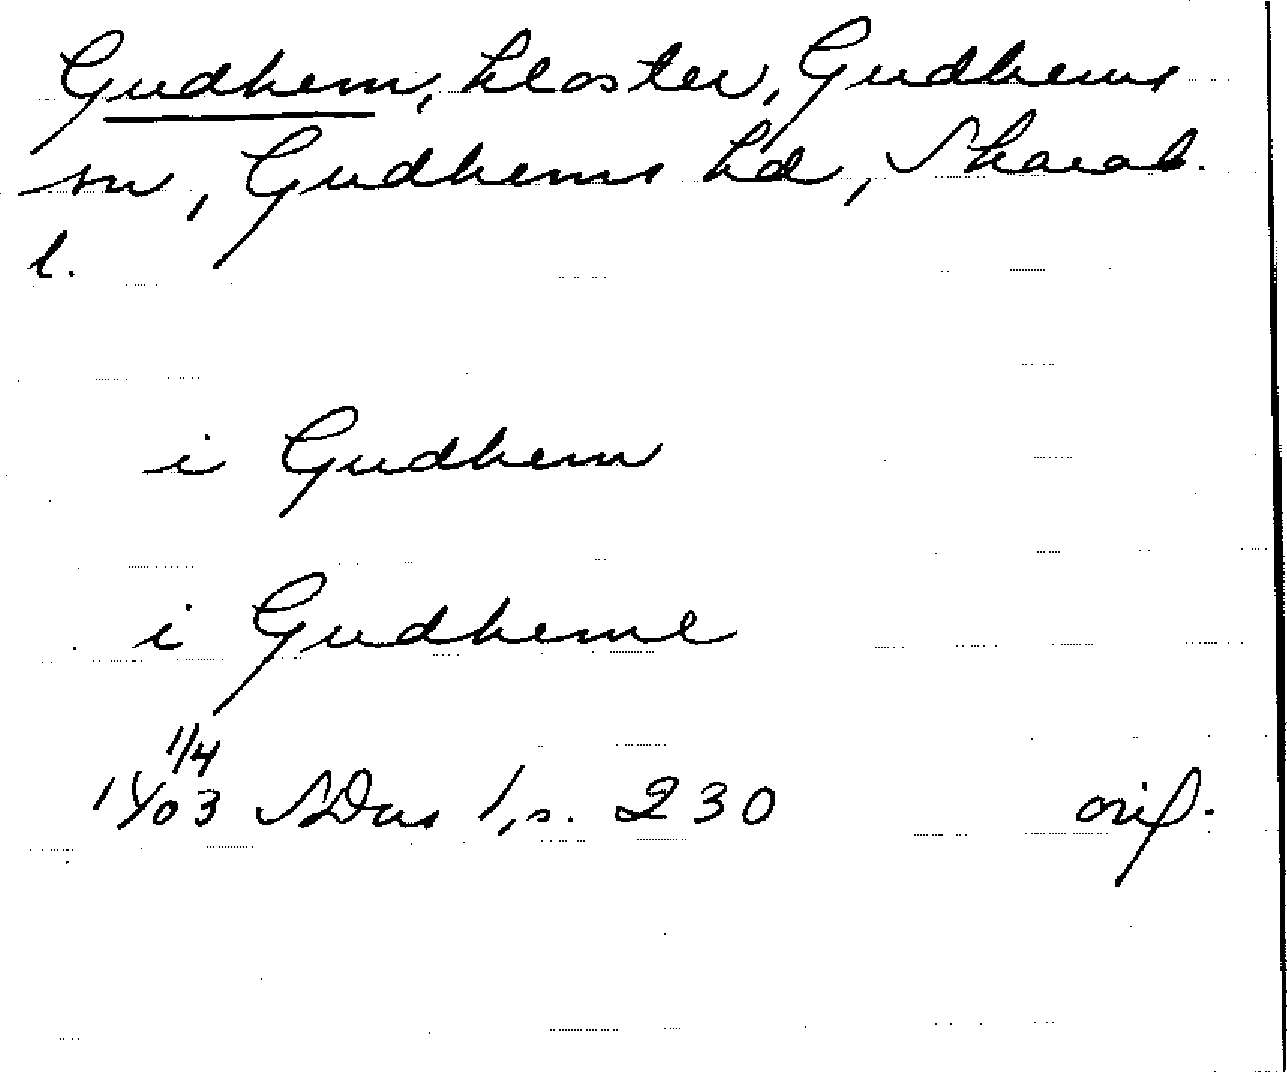 Gudhem, kloster, Gudhems
sn, Gudhems hd, Skarab.
l.
i Gudhem
i Gudheme
1/4
1403 SDns 1, s. 230 orig.